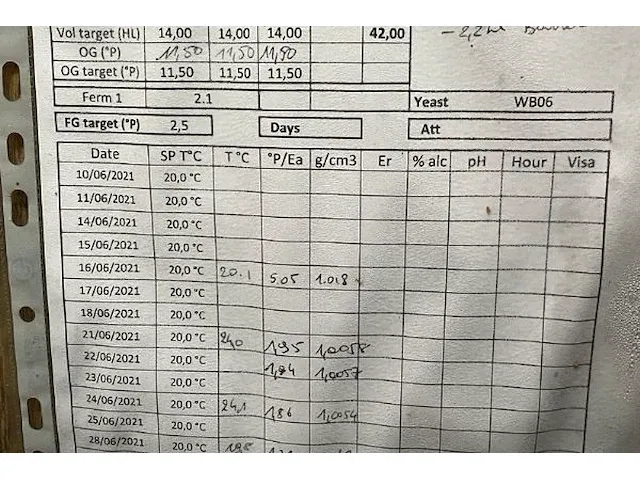 Vol target (HL) 14,00 14,00 14,00 42,00
OG (°P) 11,50 11,50 11,90
OG target (°P) 11,50 11,50 11,50
Ferm 1 2.1 Yeast WB06
FG target (°P) 2,5 Days Att
Date SP T°C T°C °P/Ea g/cm3 Er % alc pH Hour Visa
10/06/2021 20,0 °C
11/06/2021 20,0 °C
14/06/2021 20,0 °C
15/06/2021 20,0 °C
16/06/2021 20,0 °C 20.1 5.05 1.018
17/06/2021 20,0 °C
18/06/2021 20,0 °C
21/06/2021 20,0 °C 24,0 1,95 1,0058
22/06/2021 20,0 °C 1,94 1,0057
23/06/2021 20,0 °C
24/06/2021 20,0 °C 24,1 1,86 1,0054
25/06/2021 20,0 °C
28/06/2021 20,0 °C